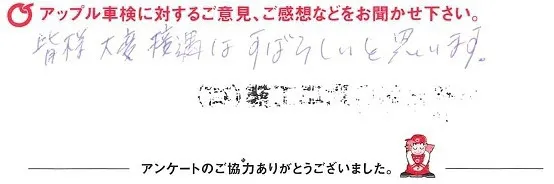 アップル車検に対するご意見、ご感想などをお聞かせ下さい。
皆様大変接遇はすばらしいと思います。
アンケートのご協力ありがとうございました。